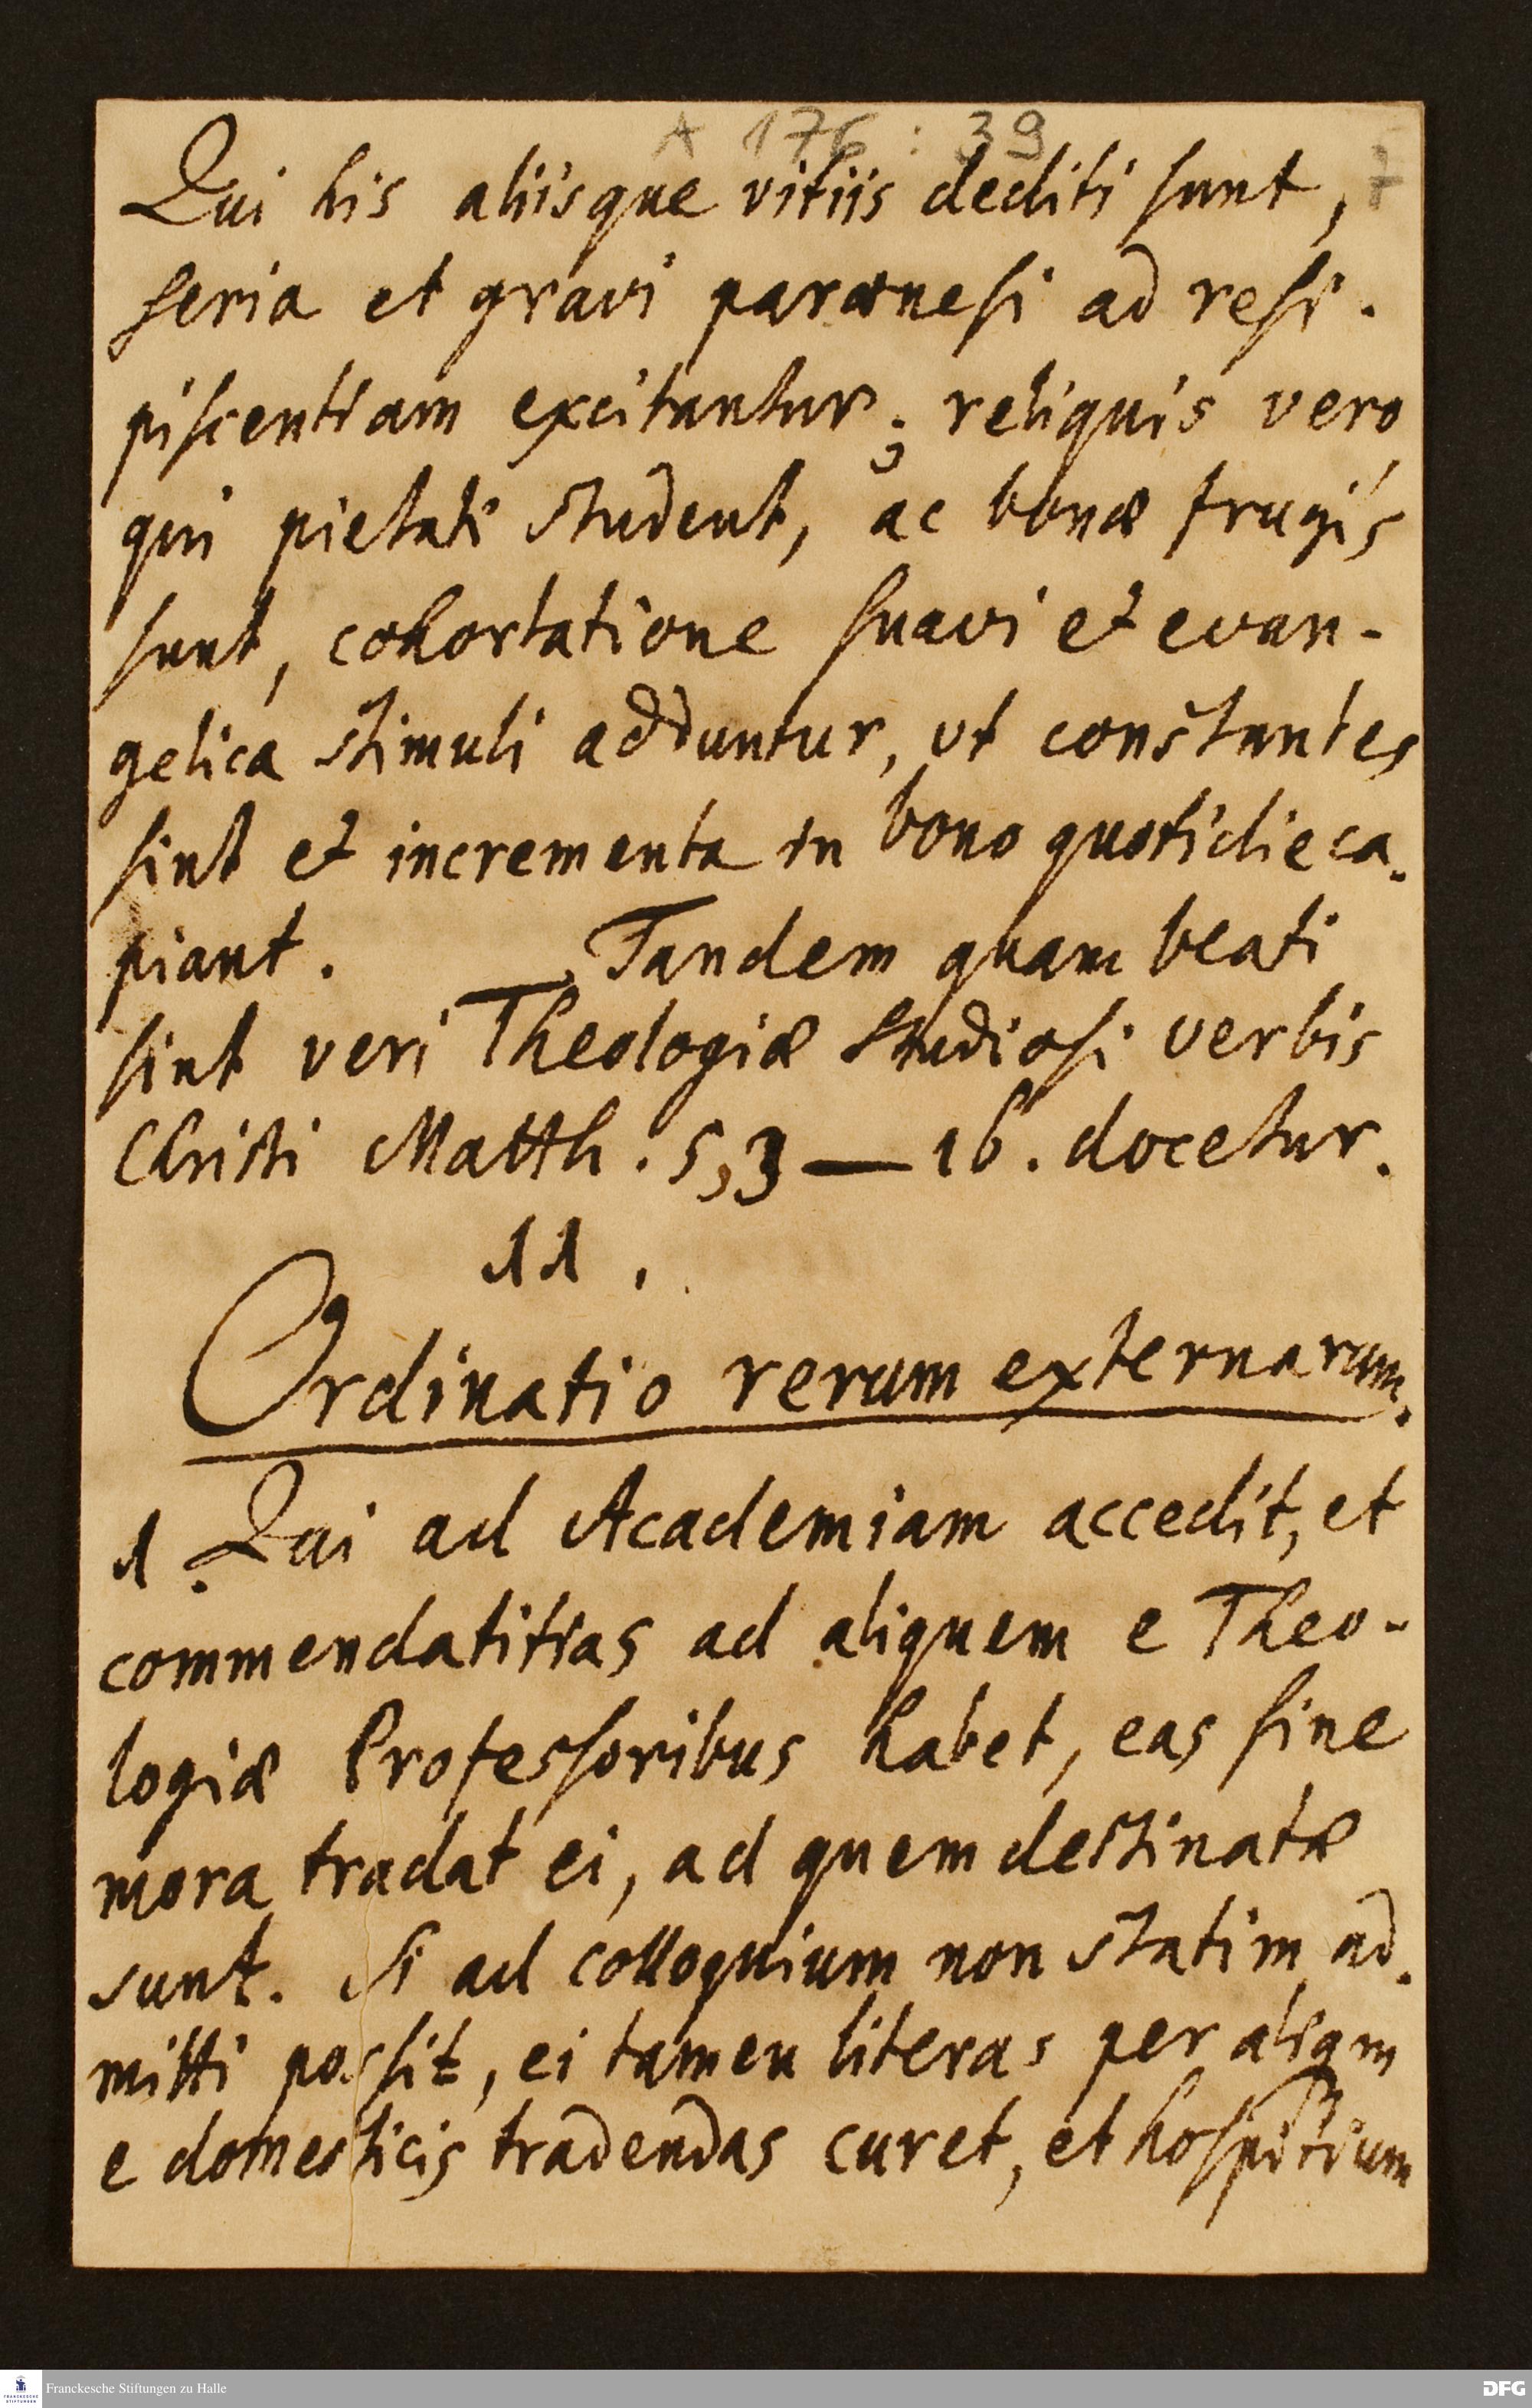 A 176 : 39
Qui his aliisque vitiis dediti sunt,
seria et gravi parænesi ad resi-
piscentiam excitantur; reliquis vero
qui pietati student, ac bonæ frugis
sunt, cohortatione suavi et evan-
gelica stimuli adduntur, ut constantes
sint et incrementa in bono quotidie ca-
piant. Tandem quam beati
sint veri Theologiæ Studiosi verbis
Christi Matth. 5,3 — 16. docetur.
11.
Ordinatio rerum externarum.
1. Qui ad Academiam accedit, et
commendatitias ad aliquem e Theo-
logiæ Professoribus habet, eas sine
mora tradat ei, ad quem destinatæ
sunt. Si ad colloquium non statim ad-
mitti possit, ei tamen literas per aliqm
e domesticis tradendas curet, et hospitium
Franckesche Stiftungen zu Halle
DFG